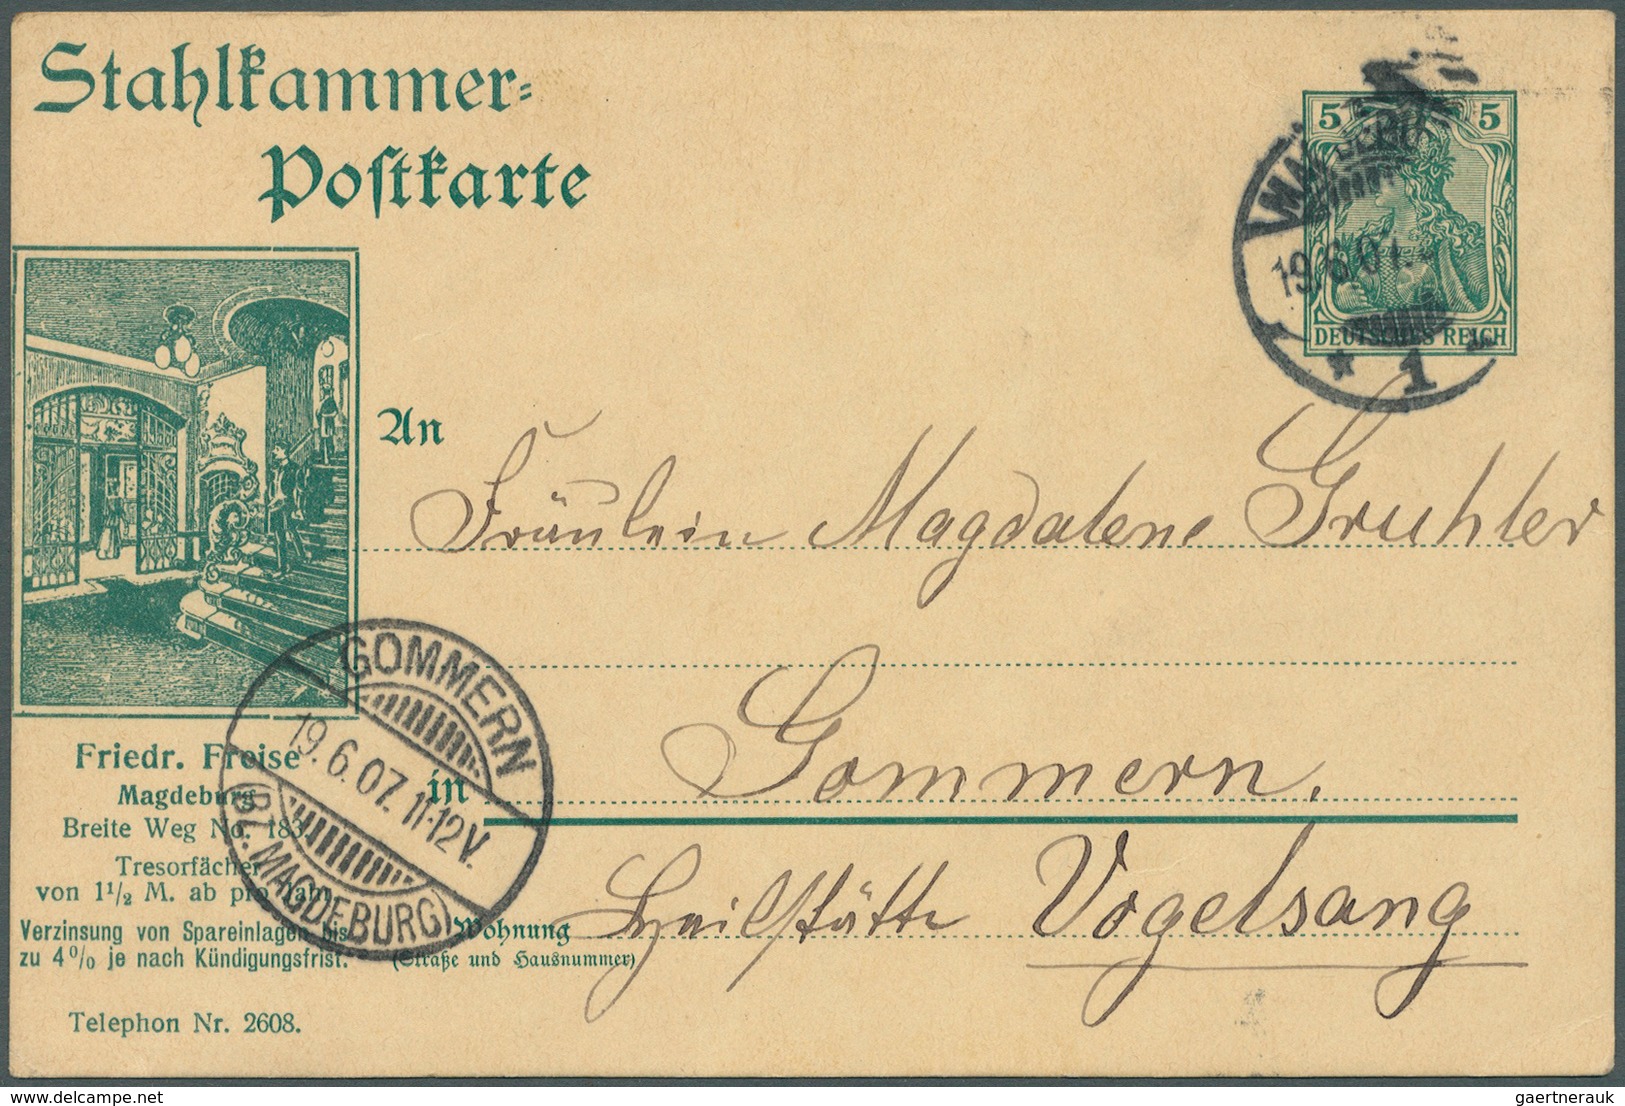 Stahlkammer-
Postkarte
5 5
DEUTSCHES REICH
19.6.07.
* 1
An
Fräulein Magdalene Gruhler
in
Gommern.
Wohnung
(Straße und Hausnummer)
Heilstätte Vogelsang
GOMMERN
19.6.07. 11-12V.
(BZ. MAGDEBURG)
Friedr. Freise
Magdeburg
Breite Weg No. 183.
Tresorfächer
von 1½ M. ab pro Jahr.
Verzinsung von Spareinlagen bis
zu 4% je nach Kündigungsfrist.
Telephon Nr. 2608.
gaertnerauk